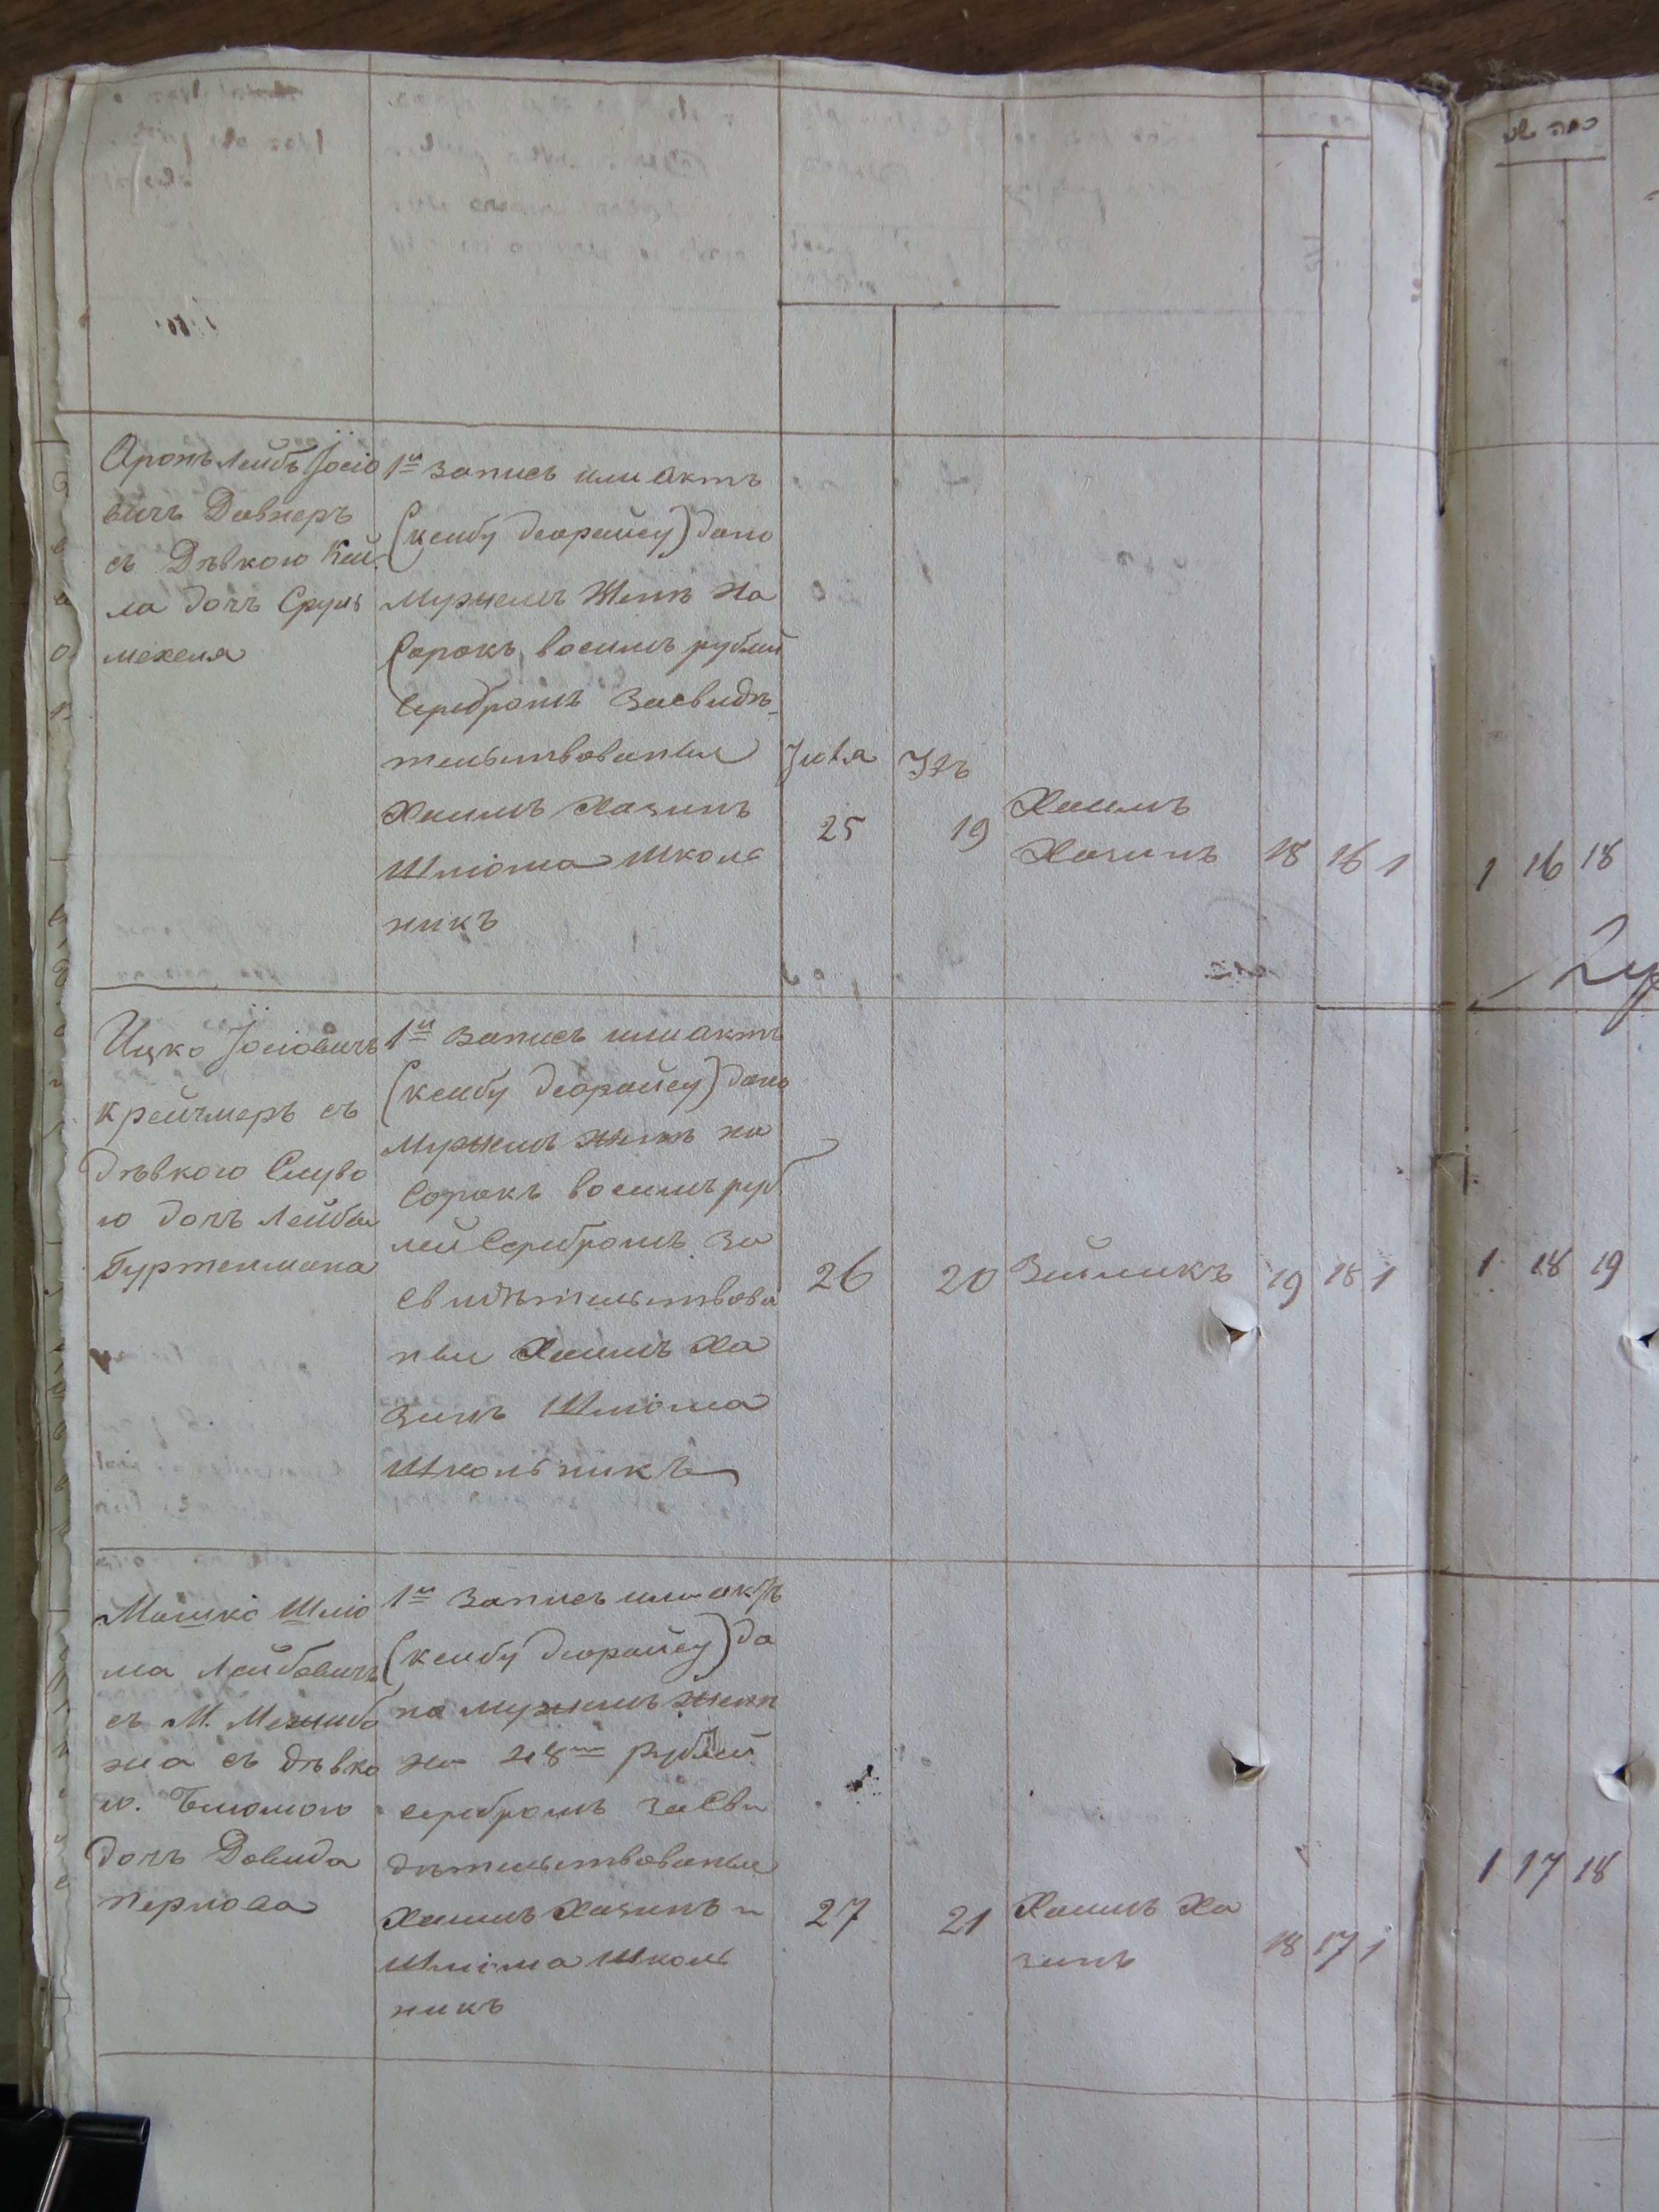 Аронъ Лейбъ Іосіо
вичъ Довнеръ
съ Дѣвкою Кей
ла дочъ Сруль
мехеля
1й запись или актъ
(ксибу деорайсу) дано
Мужемъ Женѣ на
Сорокъ восимъ рублей
Серебромъ Засвидѣ-
тельствованы
Хаимъ Хазинъ
Шліома Школь
никъ
Іюля
25
19
Хаимъ
Хазинъ
18 16 1
1 16 18
Ицко Іосіовичъ
Крейчмеръ съ
дѣвкою Слуво
ю дочъ Лейбы
Гуртенмана
1й запись или актъ
(ксибу деорайсу) дано
Мужемъ женѣ на
Сорокъ восимъ руб
лей Серебромъ За
свидѣтельствова
ны Хаимъ Ха
зинъ Шліома
Школьникъ
26
20
Зийликъ
19 18 1
1 18 19
Мошко Шліо
ма Лейбовичъ
съ М. Межибо
жа съ дѣвко
ю
дочъ Довида
перлова
1й Запись или актъ
(ксибу деорайсу) да
но мужемъ женѣ
на 48 рублей
серебромъ засви
дѣтельствованы
Хаимъ Хазинъ и
Шліома Школь
никъ
27
21
Хаимъ Ха
зинъ
18 17 1
1 17 18